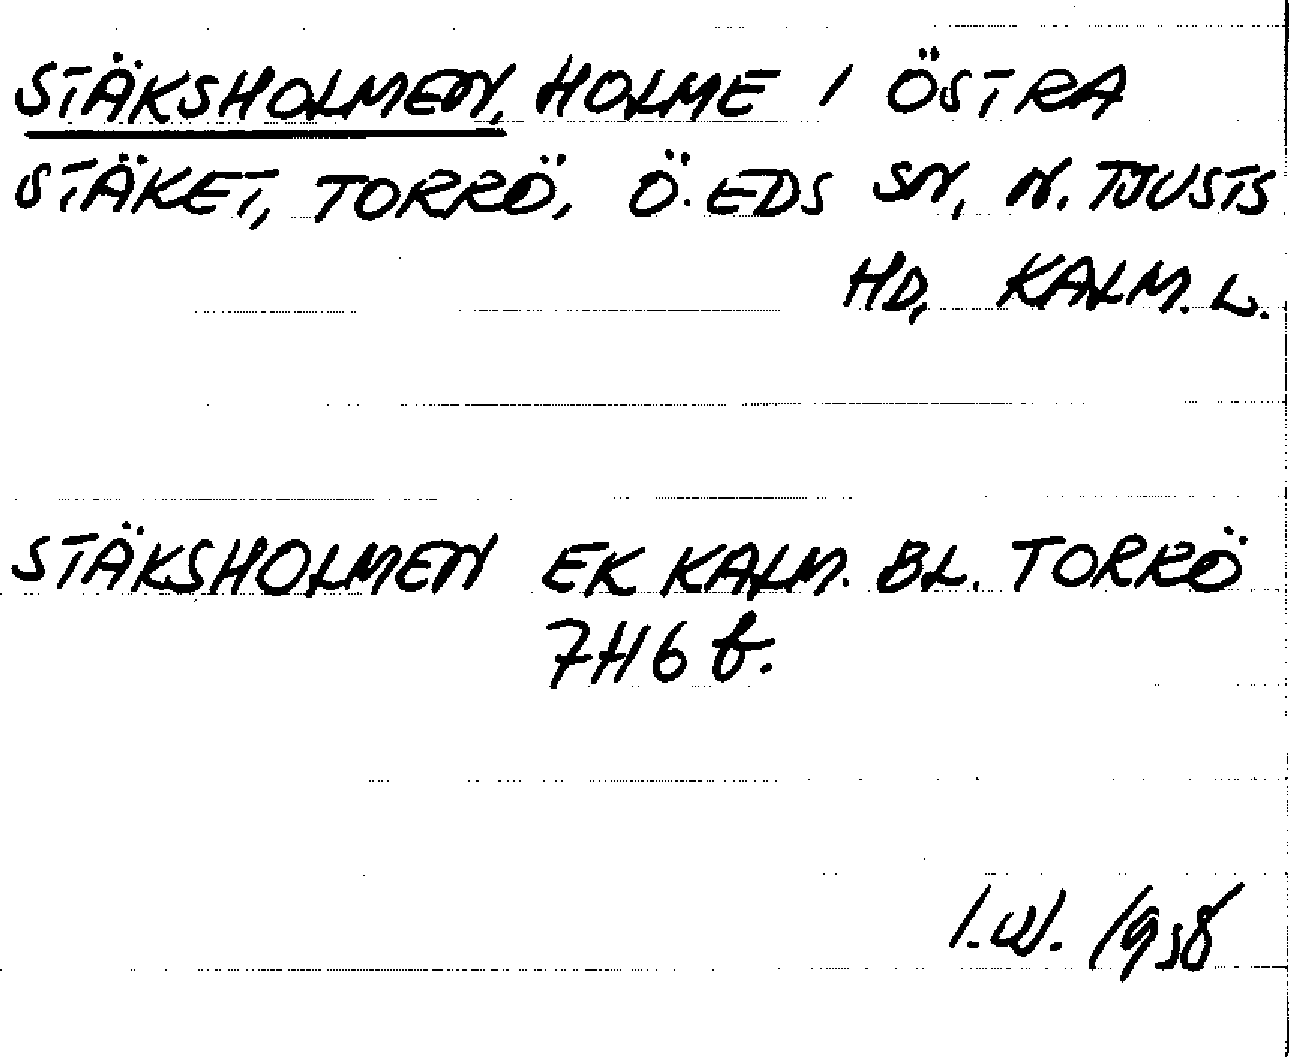 STÄKSHOLMEN, HOLME I ÖSTRA
STÄKET, TORRÖ, Ö. EDS SN, N. TJUSTS
HD, KALM. L.
STÄKSHOLMEN EK KALM. BL. TORRÖ
7H6 f.
I.W. 1958